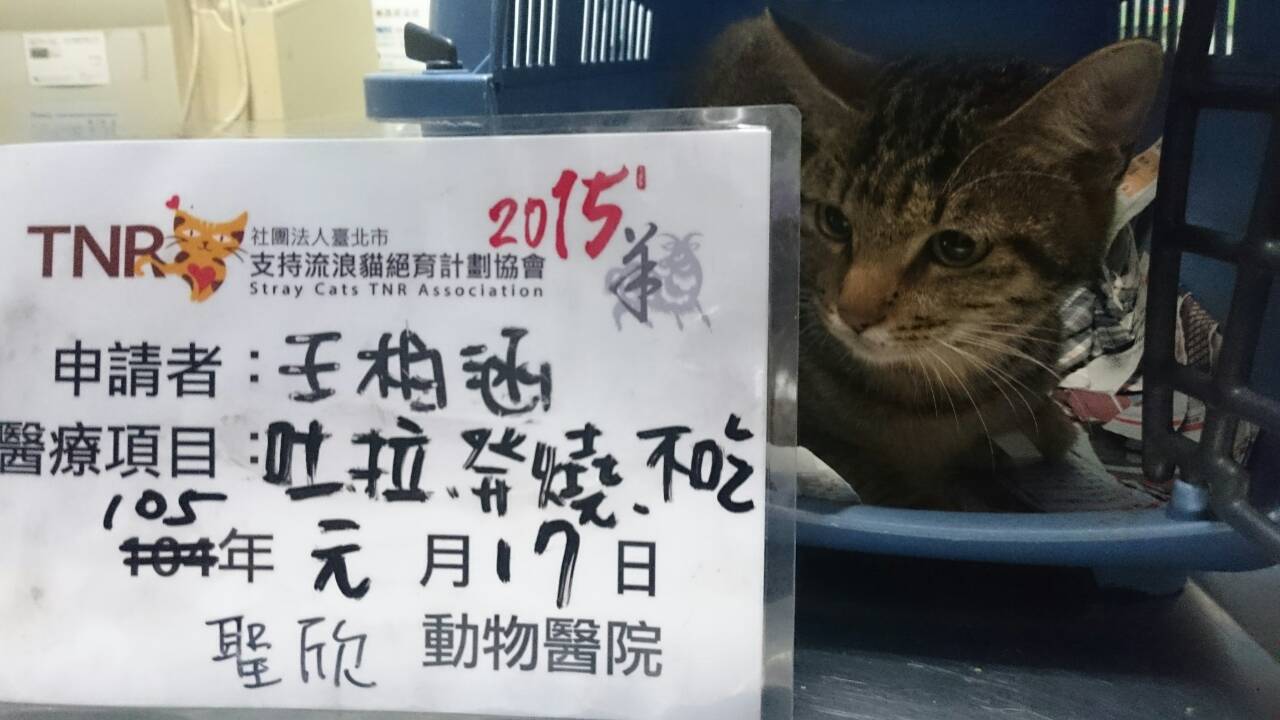 TNR 社團法人臺北市
支持流浪貓絕育計劃協會
Stray Cats TNR Association
2015 羊
申請者：王柏涵
醫療項目：吐.拉.發燒.不吃
105
104年元月17日
聖欣動物醫院